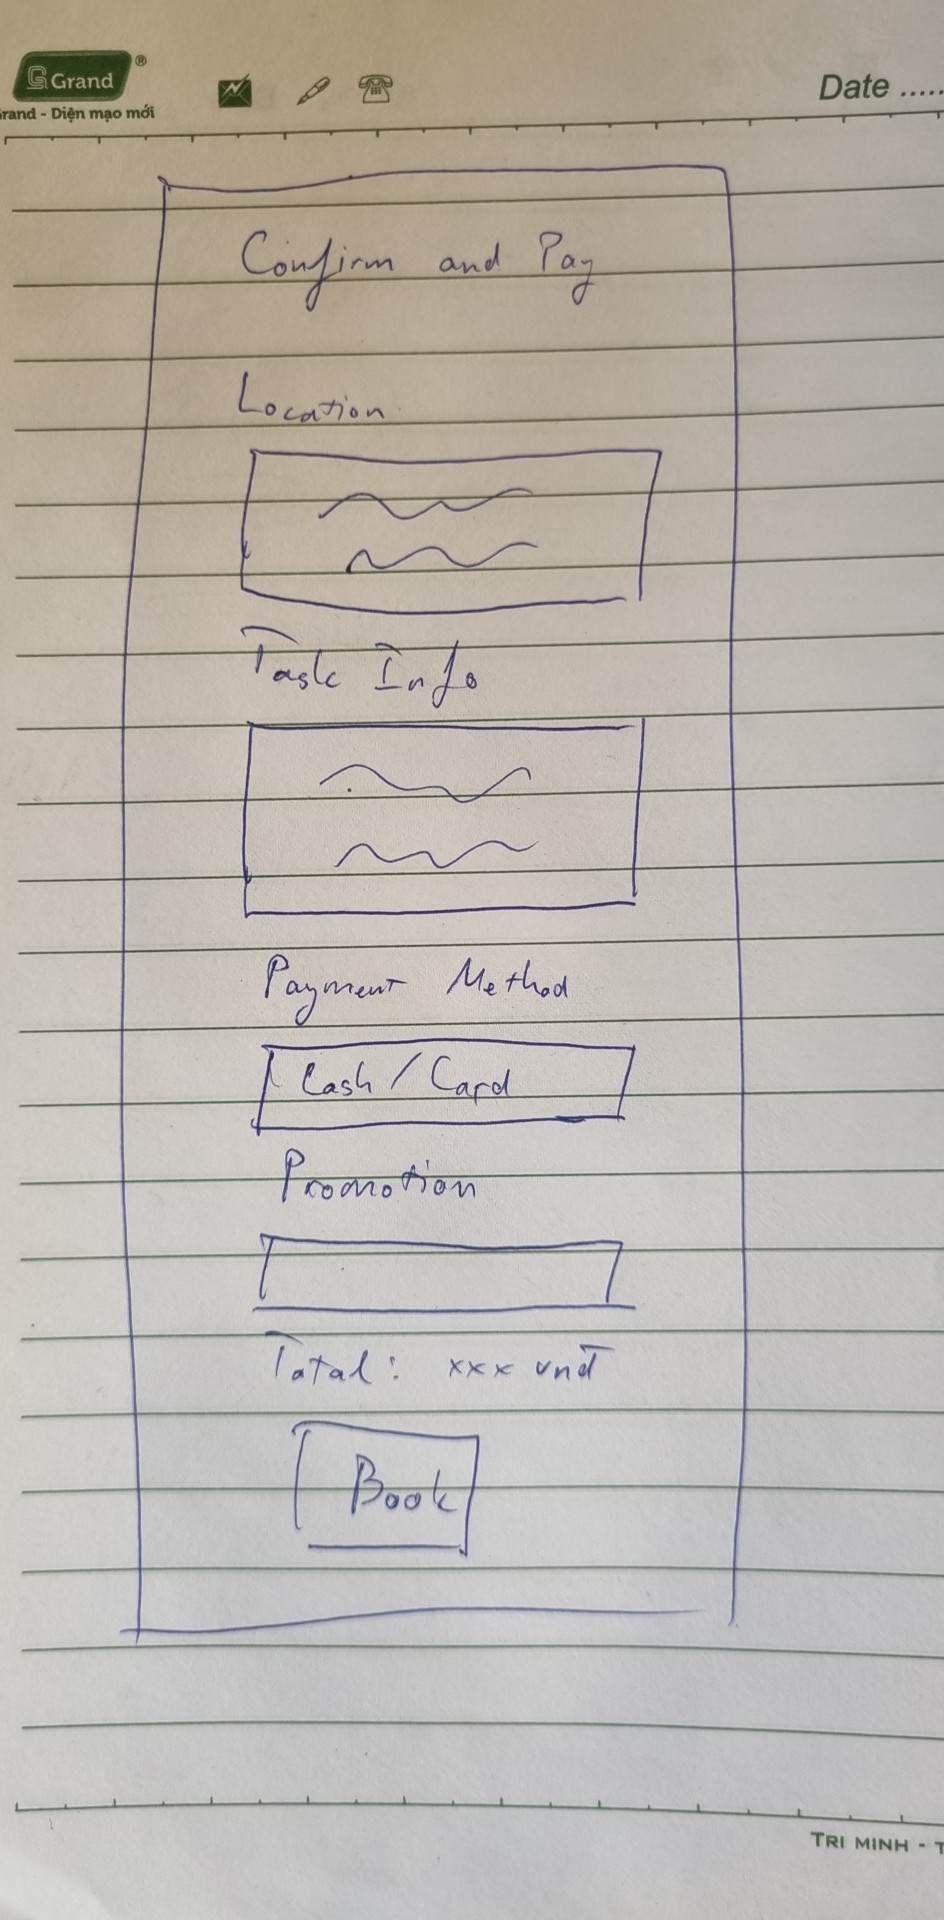 Grand ®
Grand - Diện mạo mới
Date .....
Confirm and Pay
Location
Task Info
Payment Method
Cash / Card
Promotion
Total: xxx vnđ
Book
TRI MINH - T